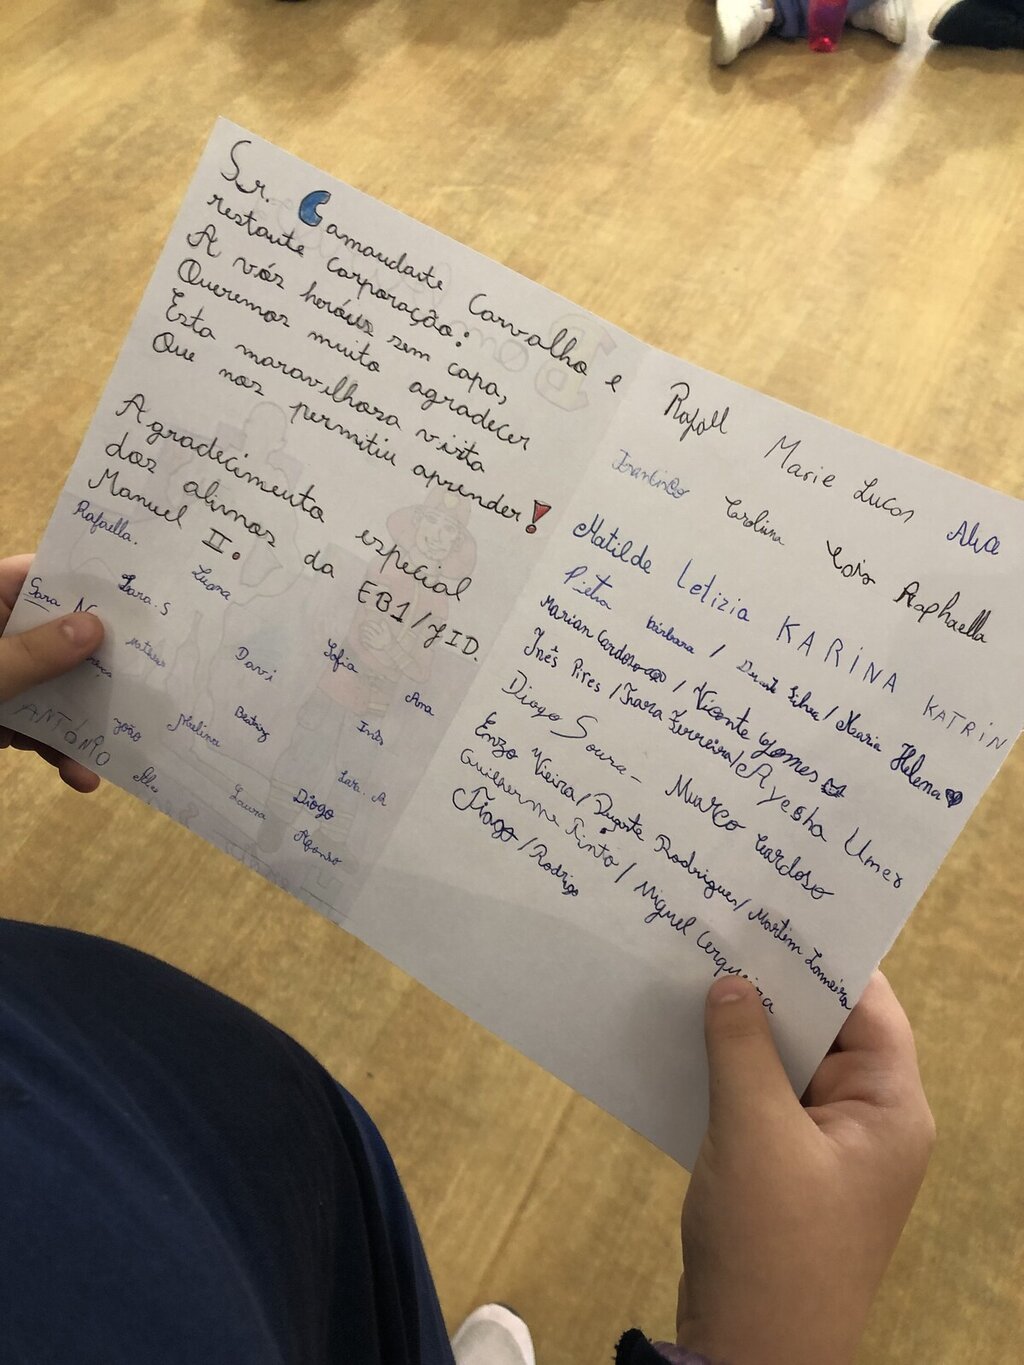 Sr. Camandante Carvalho e
restante corporação:
A vós heróis sem capa,
Queremos muito agradecer
Esta maravilhosa visita
Que nos permitiu aprender!
Agradecimento especial
dos alunos da EB1/JID.
Manuel II.
Rafaella.
Lara.S Luana
Sara
Matheus Davi Sofia Ana
João Melina Beatriz Inês
ANTÓNIO
Laura Diogo Lara. A
Afonso
Marie Lucas
Francisco Carolina Raphaella
Matilde Letizia KARINA KATRIN
Pietra Bárbara / Silva / Maria Helena
Marian Cardoso / Vicente Gomes
Inês Pires / Ferreira / Ayesha Umer
Diogo Sousa - Marco Cardoso
Enzo Vieira / Duarte Rodrigues / Martim
Guilherme Pinto / Miguel Cerqueira
Tiago / Rodrigo